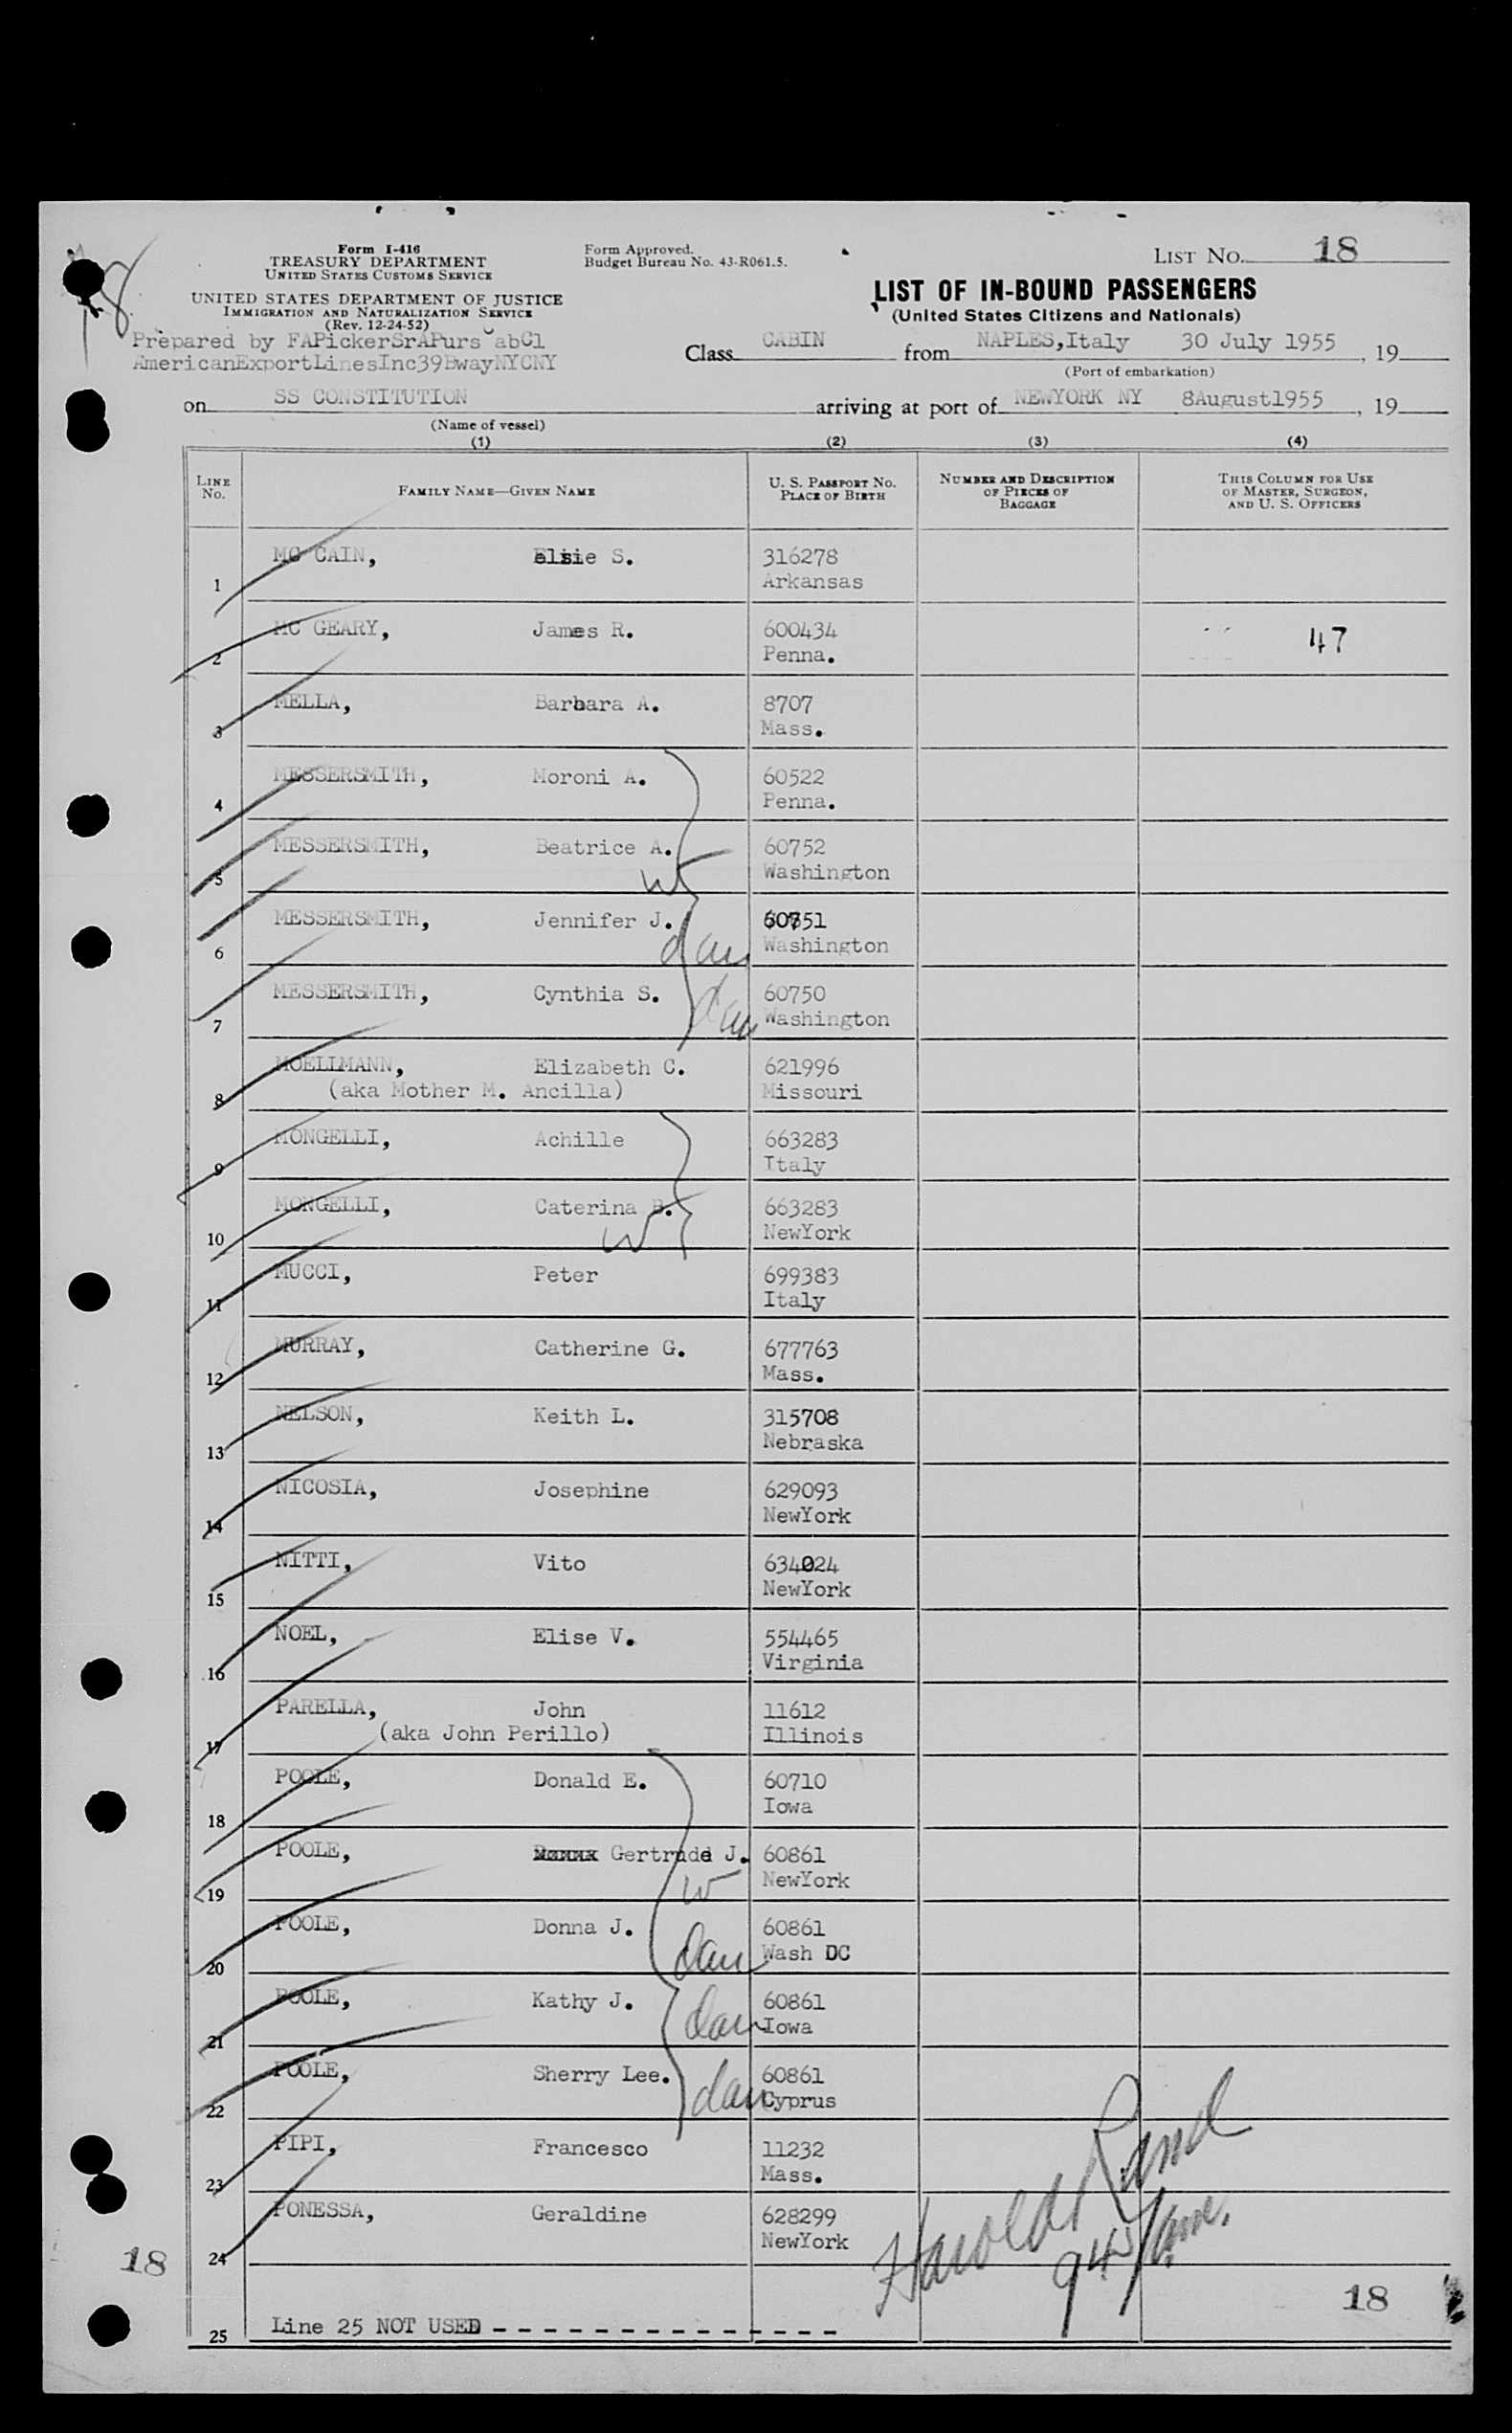 Form I-416
TREASURY DEPARTMENT
UNITED STATES CUSTOMS SERVICE
UNITED STATES DEPARTMENT OF JUSTICE
IMMIGRATION AND NATURALIZATION SERVICE
(Rev. 12-24-52)
Prepared by FAPickerSrAPurs abCl
AmericanExportLinesInc39BwayNYCNY
Form Approved.
Budget Bureau No. 43-R061.5.
LIST NO. 18
LIST OF IN-BOUND PASSENGERS
(United States Citizens and Nationals)
Class CABIN from NAPLES,Italy 30 July 1955, 19
(Port of embarkation)
on SS CONSTITUTION arriving at port of NEWYORK NY 8August1955, 19
(Name of vessel)
(1) (2) (3) (4)
LINE No. FAMILY NAME—GIVEN NAME U. S. PASSPORT NO. PLACE OF BIRTH NUMBER AND DESCRIPTION OF PIECES OF BAGGAGE THIS COLUMN FOR USE OF MASTER, SURGEON, AND U. S. OFFICERS
1 MC CAIN, Elsie S. 316278
Arkansas
2 MC GEARY, James R. 600434 47
Penna.
3 MELLA, Barbara A. 8707
Mass.
4 MESSERSMITH, Moroni A. 60522
Penna.
5 MESSERSMITH, Beatrice A. 60752
W Washington
6 MESSERSMITH, Jennifer J. 60751
dau Washington
7 MESSERSMITH, Cynthia S. 60750
dau Washington
8 MOELLMANN, Elizabeth C. 621996
(aka Mother M. Ancilla) Missouri
9 MONGELLI, Achille 663283
Italy
10 MONGELLI, Caterina B. 663283
W NewYork
11 MUCCI, Peter 699383
Italy
12 MURRAY, Catherine G. 677763
Mass.
13 NELSON, Keith L. 315708
Nebraska
14 NICOSIA, Josephine 629093
NewYork
15 NITTI, Vito 634024
NewYork
16 NOEL, Elise V. 554465
Virginia
17 PARELLA, John 11612
(aka John Perillo) Illinois
18 POOLE, Donald E. 60710
Iowa
19 POOLE, Gertrude J. 60861
W NewYork
20 POOLE, Donna J. 60861
dau Wash DC
21 POOLE, Kathy J. 60861
dau Iowa
22 POOLE, Sherry Lee. 60861
dau Cyprus
23 PIPI, Francesco 11232
Mass.
24 PONESSA, Geraldine 628299
NewYork
Harold Rand
18
18
25 Line 25 NOT USED - - - - - - - - - - - - - - -